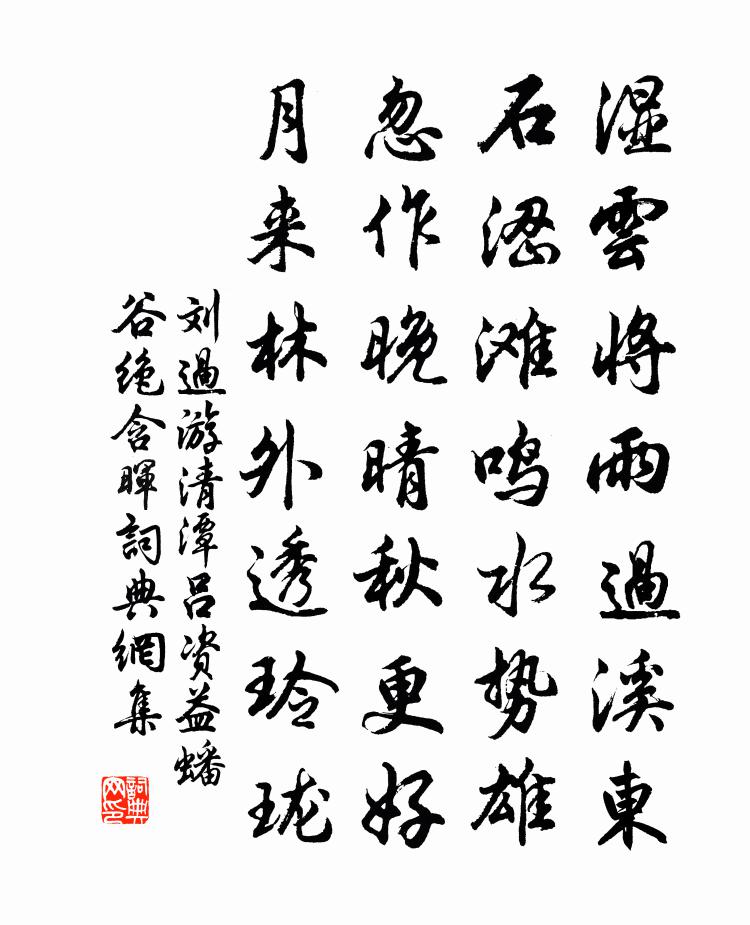 湿雲將雨過溪東
石涩滩鸣水势雄
忽作晚晴秋更好
月来林外透玲珑
刘過游清潭吕资益蟠
谷绝含暉詞典網集
詞典网印